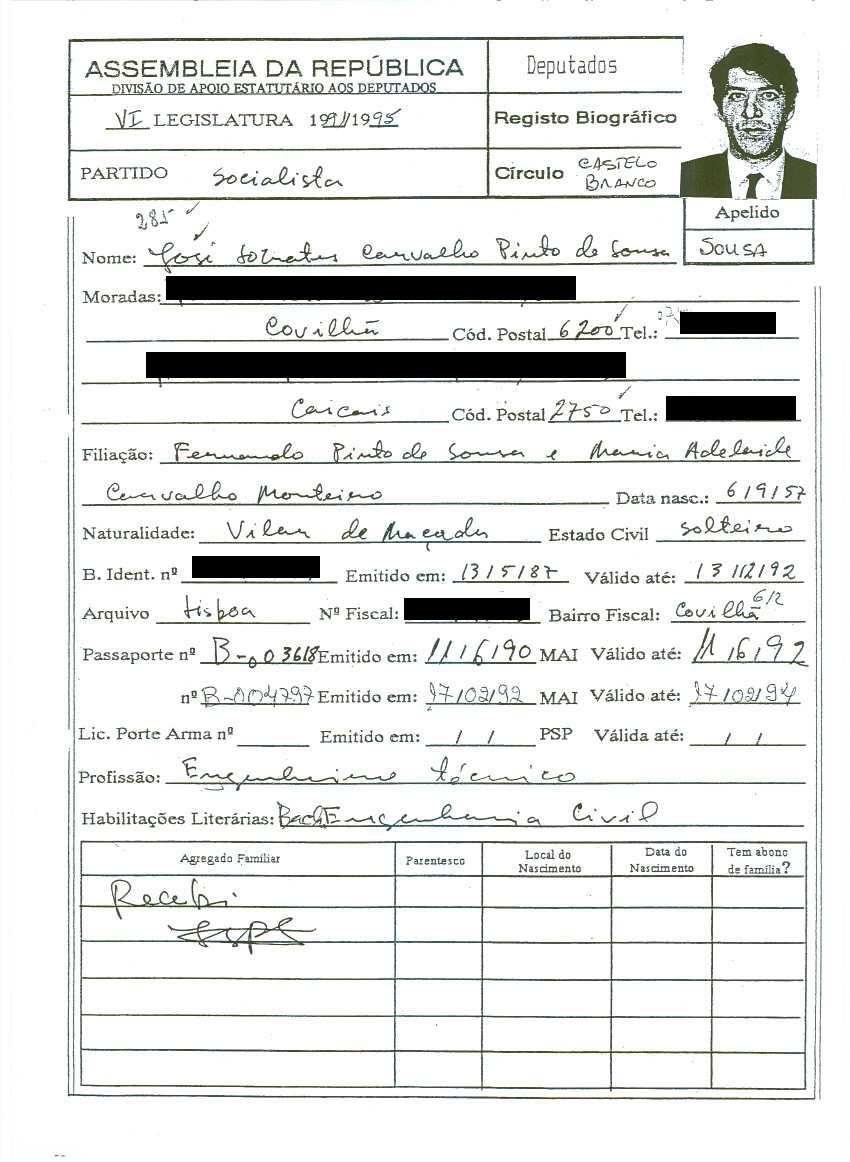 ASSEMBLEIA DA REPÚBLICA
DIVISÃO DE APOIO ESTATUTÁRIO AOS DEPUTADOS
VI LEGISLATURA 1991/1995
Deputados
Registo Biográfico
PARTIDO Socialista
Círculo CASTELO BRANCO
Apelido
SOUSA
285
Nome: José Sócrates Carvalho Pinto de Sousa
Moradas:
Covilhã Cód. Postal 6200 Tel.:
Cascais Cód. Postal 2750 Tel.:
Filiação: Fernando Pinto de Sousa e Maria Adelaide
Carvalho Monteiro Data nasc.: 6/9/57
Naturalidade: Vilar de Maçada Estado Civil solteiro
B. Ident. nº Emitido em: 13/5/87 Válido até: 13/12/92
Arquivo Lisboa Nº Fiscal: Bairro Fiscal: Covilhã
Passaporte nº B-003618 Emitido em: 11/6/90 MAI Válido até: 11/6/92
nº B-004797 Emitido em: 17/02/92 MAI Válido até: 17/02/94
Lic. Porte Arma nº Emitido em: / / PSP Válida até: / /
Profissão: Engenheiro técnico
Habilitações Literárias: Bach Engenharia Civil
Agregado Familiar Parentesco Local do Nascimento Data do Nascimento Tem abono de família?
Recebi